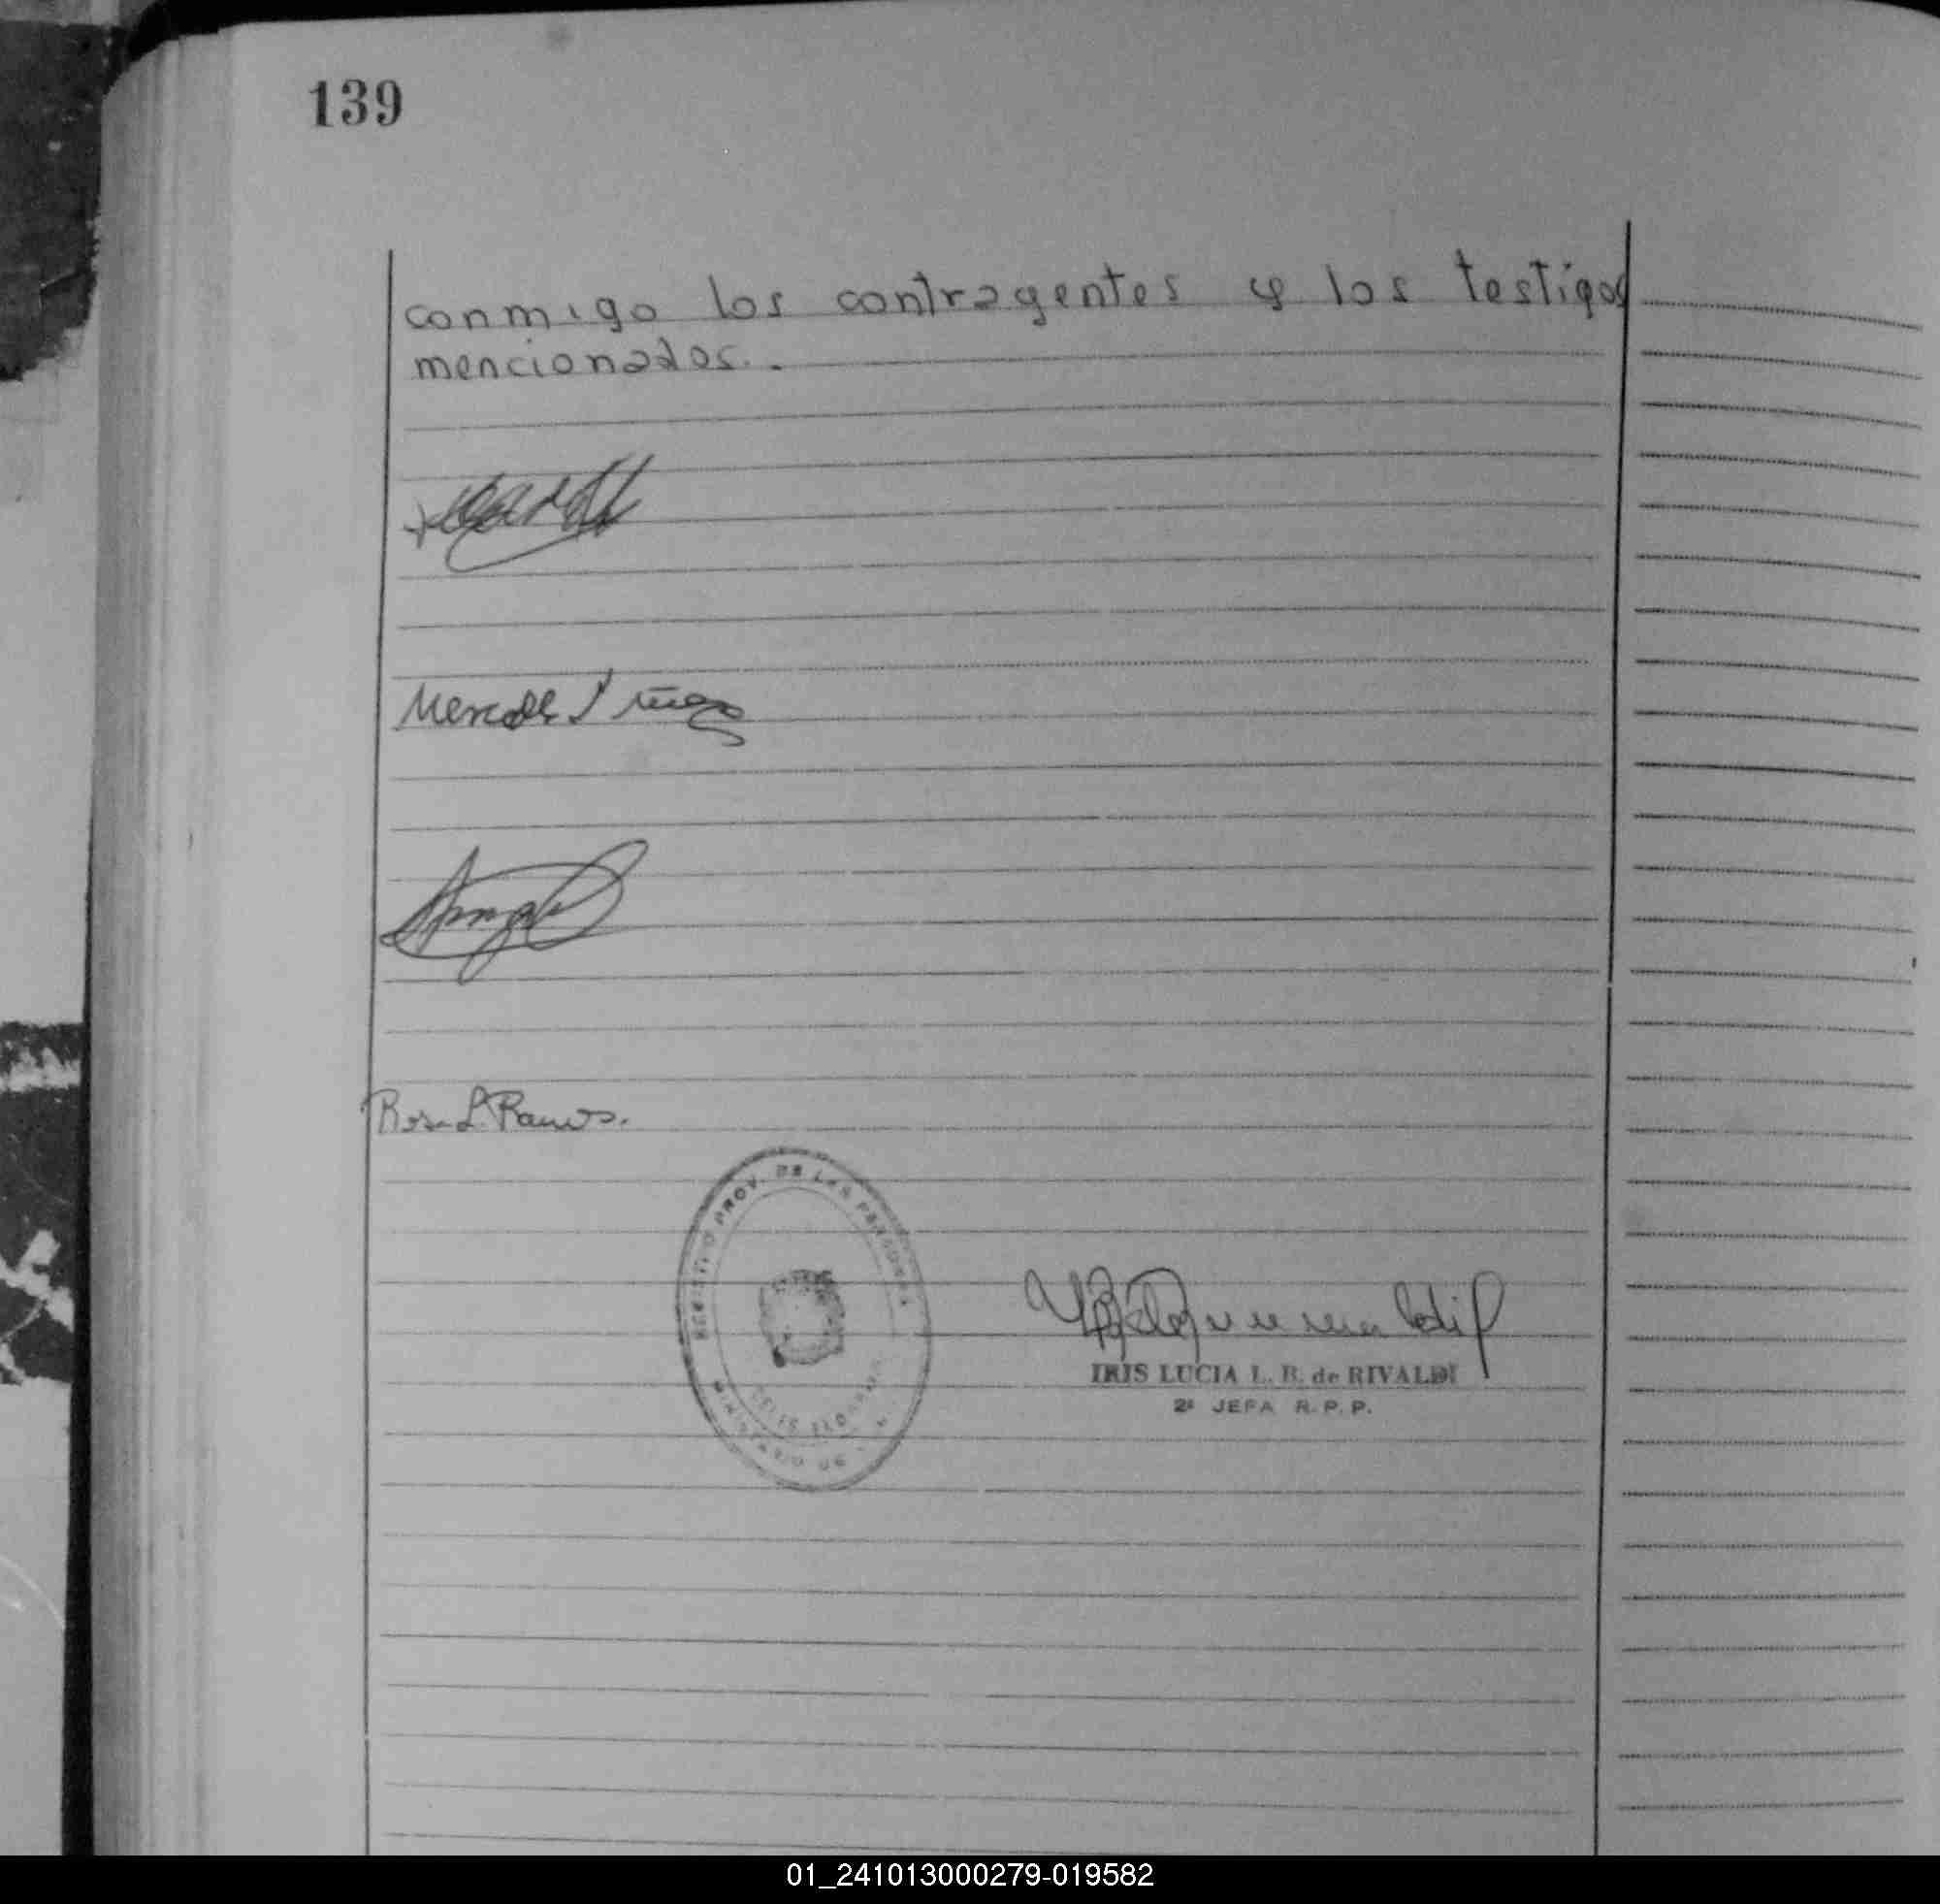 139
conmigo los contragentes y los testigos
mencionados..
Rosa L. Ramos.
REGISTRO PROV. DE LAS PERSONAS
MINISTERIO DE
IRIS LUCIA L. B. de RIVALDI
2ª JEFA R.P.P.
01_241013000279-019582